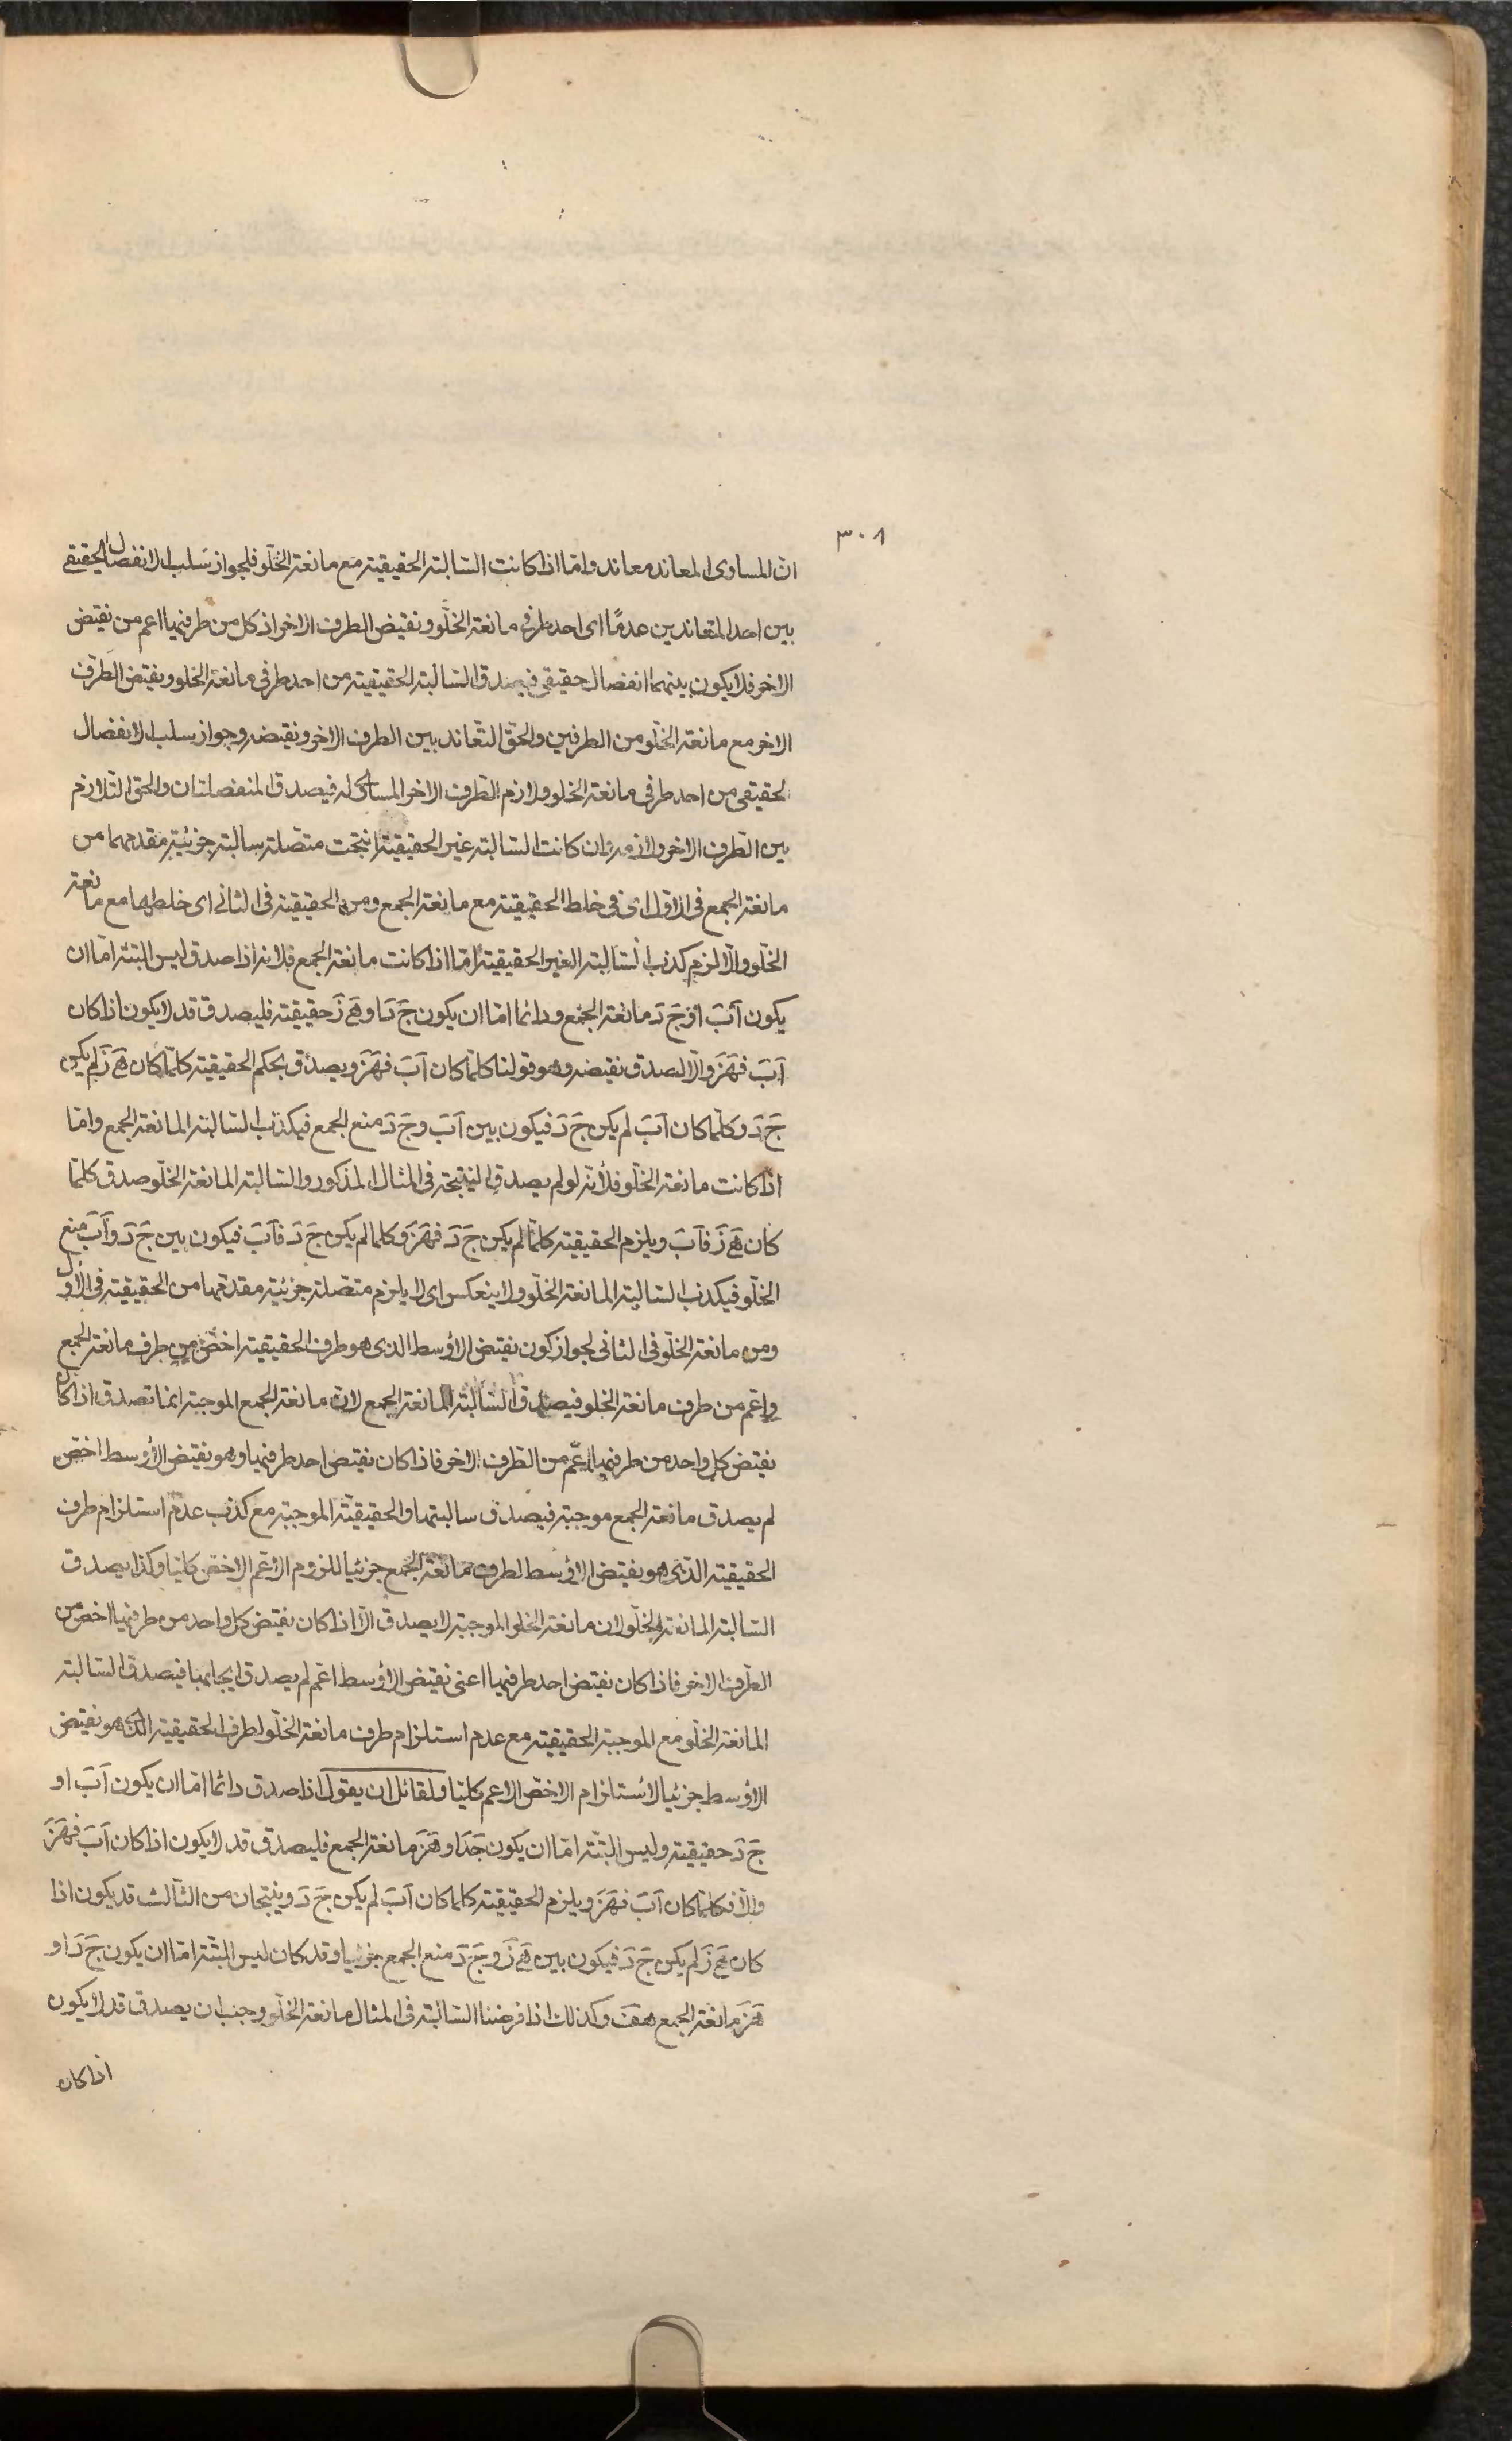 ٣٠٨
ان المساوى المعاند معاند واما اذا كانت السالبة الحقيقية مع مانعة الخلو فلجواز سلب الانفصال الحقيقى
بين احد المتعاندين عدمًا اى احد طرفى مانعة الخلو ونقيض الطرف الاخر اذ كل من طرفيها اعم من نقيض
الاخر فلا يكون بينهما انفصال حقيقى فيصدق السالبة الحقيقية من احد طرفى مانعة الخلو ونقيض الطرف
الاخر مع مانعة الخلو من الطرفين والحق التعاند بين الطرف الاخر ونقيضه وجواز سلب الانفصال
لحقيقى من احد طرفى مانعة الخلو ولازم الطرف الاخر المساوى له فيصدق المنفصلتان والحق التلازم
بين الطرف الاخر ولازمه وان كانت السالبة غير الحقيقية انتجت متصلة سالبة جزئية مقدمهما من
مانعة الجمع فى الاول اى فى خلط الحقيقية مع مانعة الجمع ومن الحقيقية فى الثانى اى خلطها مع مانعة
الخلو والا لزم كذب السالبة الغير الحقيقية اما اذا كانت مانعة الجمع فلانه اذا صدق ليس البتة اما ان
يكون آبَ او جَ دَ مانعة الجمع ودائما اما ان يكون جَ دَ او هَ زَ حقيقية فليصدق قد لا يكون اذا كان
آبَ فهَزَ والا لصدق نقيضه وهو قولنا كلما كان آبَ فهَزَ ويصدق بحكم الحقيقية كلما كان هَ زَ لم يكن
جَ دَ وكلما كان آبَ لم يكن جَ دَ فيكون بين آبَ وجَ دَ منع الجمع فيكذب السالبة المانعة الجمع واما
اذا كانت مانعة الخلو فلانه لو لم يصدق النتيجة فى المثال المذكور والسالبة المانعة الخلو صدق كلما
كان هَ زَ فآبَ ويلزم الحقيقية كلما لم يكن جَ دَ فهَزَ وكلما لم يكن جَ دَ فآبَ فيكون بين جَ دَ وآبَ منع
الخلو فيكذب السالبة المانعة الخلو ولا ينعكس اى لا يلزم متصلة جزئية مقدمها من الحقيقية فى الاول
ومن مانعة الخلو فى الثانى لجواز كون نقيض الاوسط الذى هو طرف الحقيقية اخص من طرف مانعة الجمع
واعم من طرف مانعة الخلو فيصدق السالبة المانعة الجمع لان مانعة الجمع الموجبة انما تصدق اذا كان
نقيض كل واحد من طرفيها اعم من الطرف الاخر فاذا كان نقيض احد طرفيها وهو نقيض الاوسط اخص
لم يصدق مانعة الجمع موجبة فيصدق سالبتها والحقيقية الموجبة مع كذب عدم استلزام طرف
الحقيقية الذى هو نقيض الاوسط لطرف مانعة الجمع جزئيا للزوم الاعم الاخص كليا وكذا يصدق
السالبة المانعة الخلو لان مانعة الخلو الموجبة لا يصدق الا اذا كان نقيض كل واحد من طرفيها اخص من
الطرف الاخر فاذا كان نقيض احد طرفيها اعنى نقيض الاوسط اعم لم يصدق ايجابها فيصدق السالبة
المانعة الخلو مع الموجبة الحقيقية مع عدم استلزام طرف مانعة الخلو لطرف الحقيقية الذى هو نقيض
الاوسط جزئيا لاستلزام الاخص الاعم كليا ولقائل ان يقول اذا صدق دائما اما ان يكون آبَ او
جَ دَ حقيقية وليس البتة اما ان يكون جَدَ او هَزَ مانعة الجمع فليصدق قد لا يكون اذا كان آبَ فهَزَ
والا فكلما كان آبَ فهَزَ ويلزم الحقيقية كلما كان آبَ لم يكن جَ دَ وينتجان من الثالث قد يكون اذا
كان هَ زَ لم يكن جَ دَ فيكون بين هَ زَ وجَ دَ منع الجمع جزئيا وقد كان ليس البتة اما ان يكون جَ دَ او
هَزَ مانعة الجمع هف وكذلك اذا فرضنا السالبة فى المثال مانعة الخلو وجب ان يصدق قد لا يكون
اذا كان